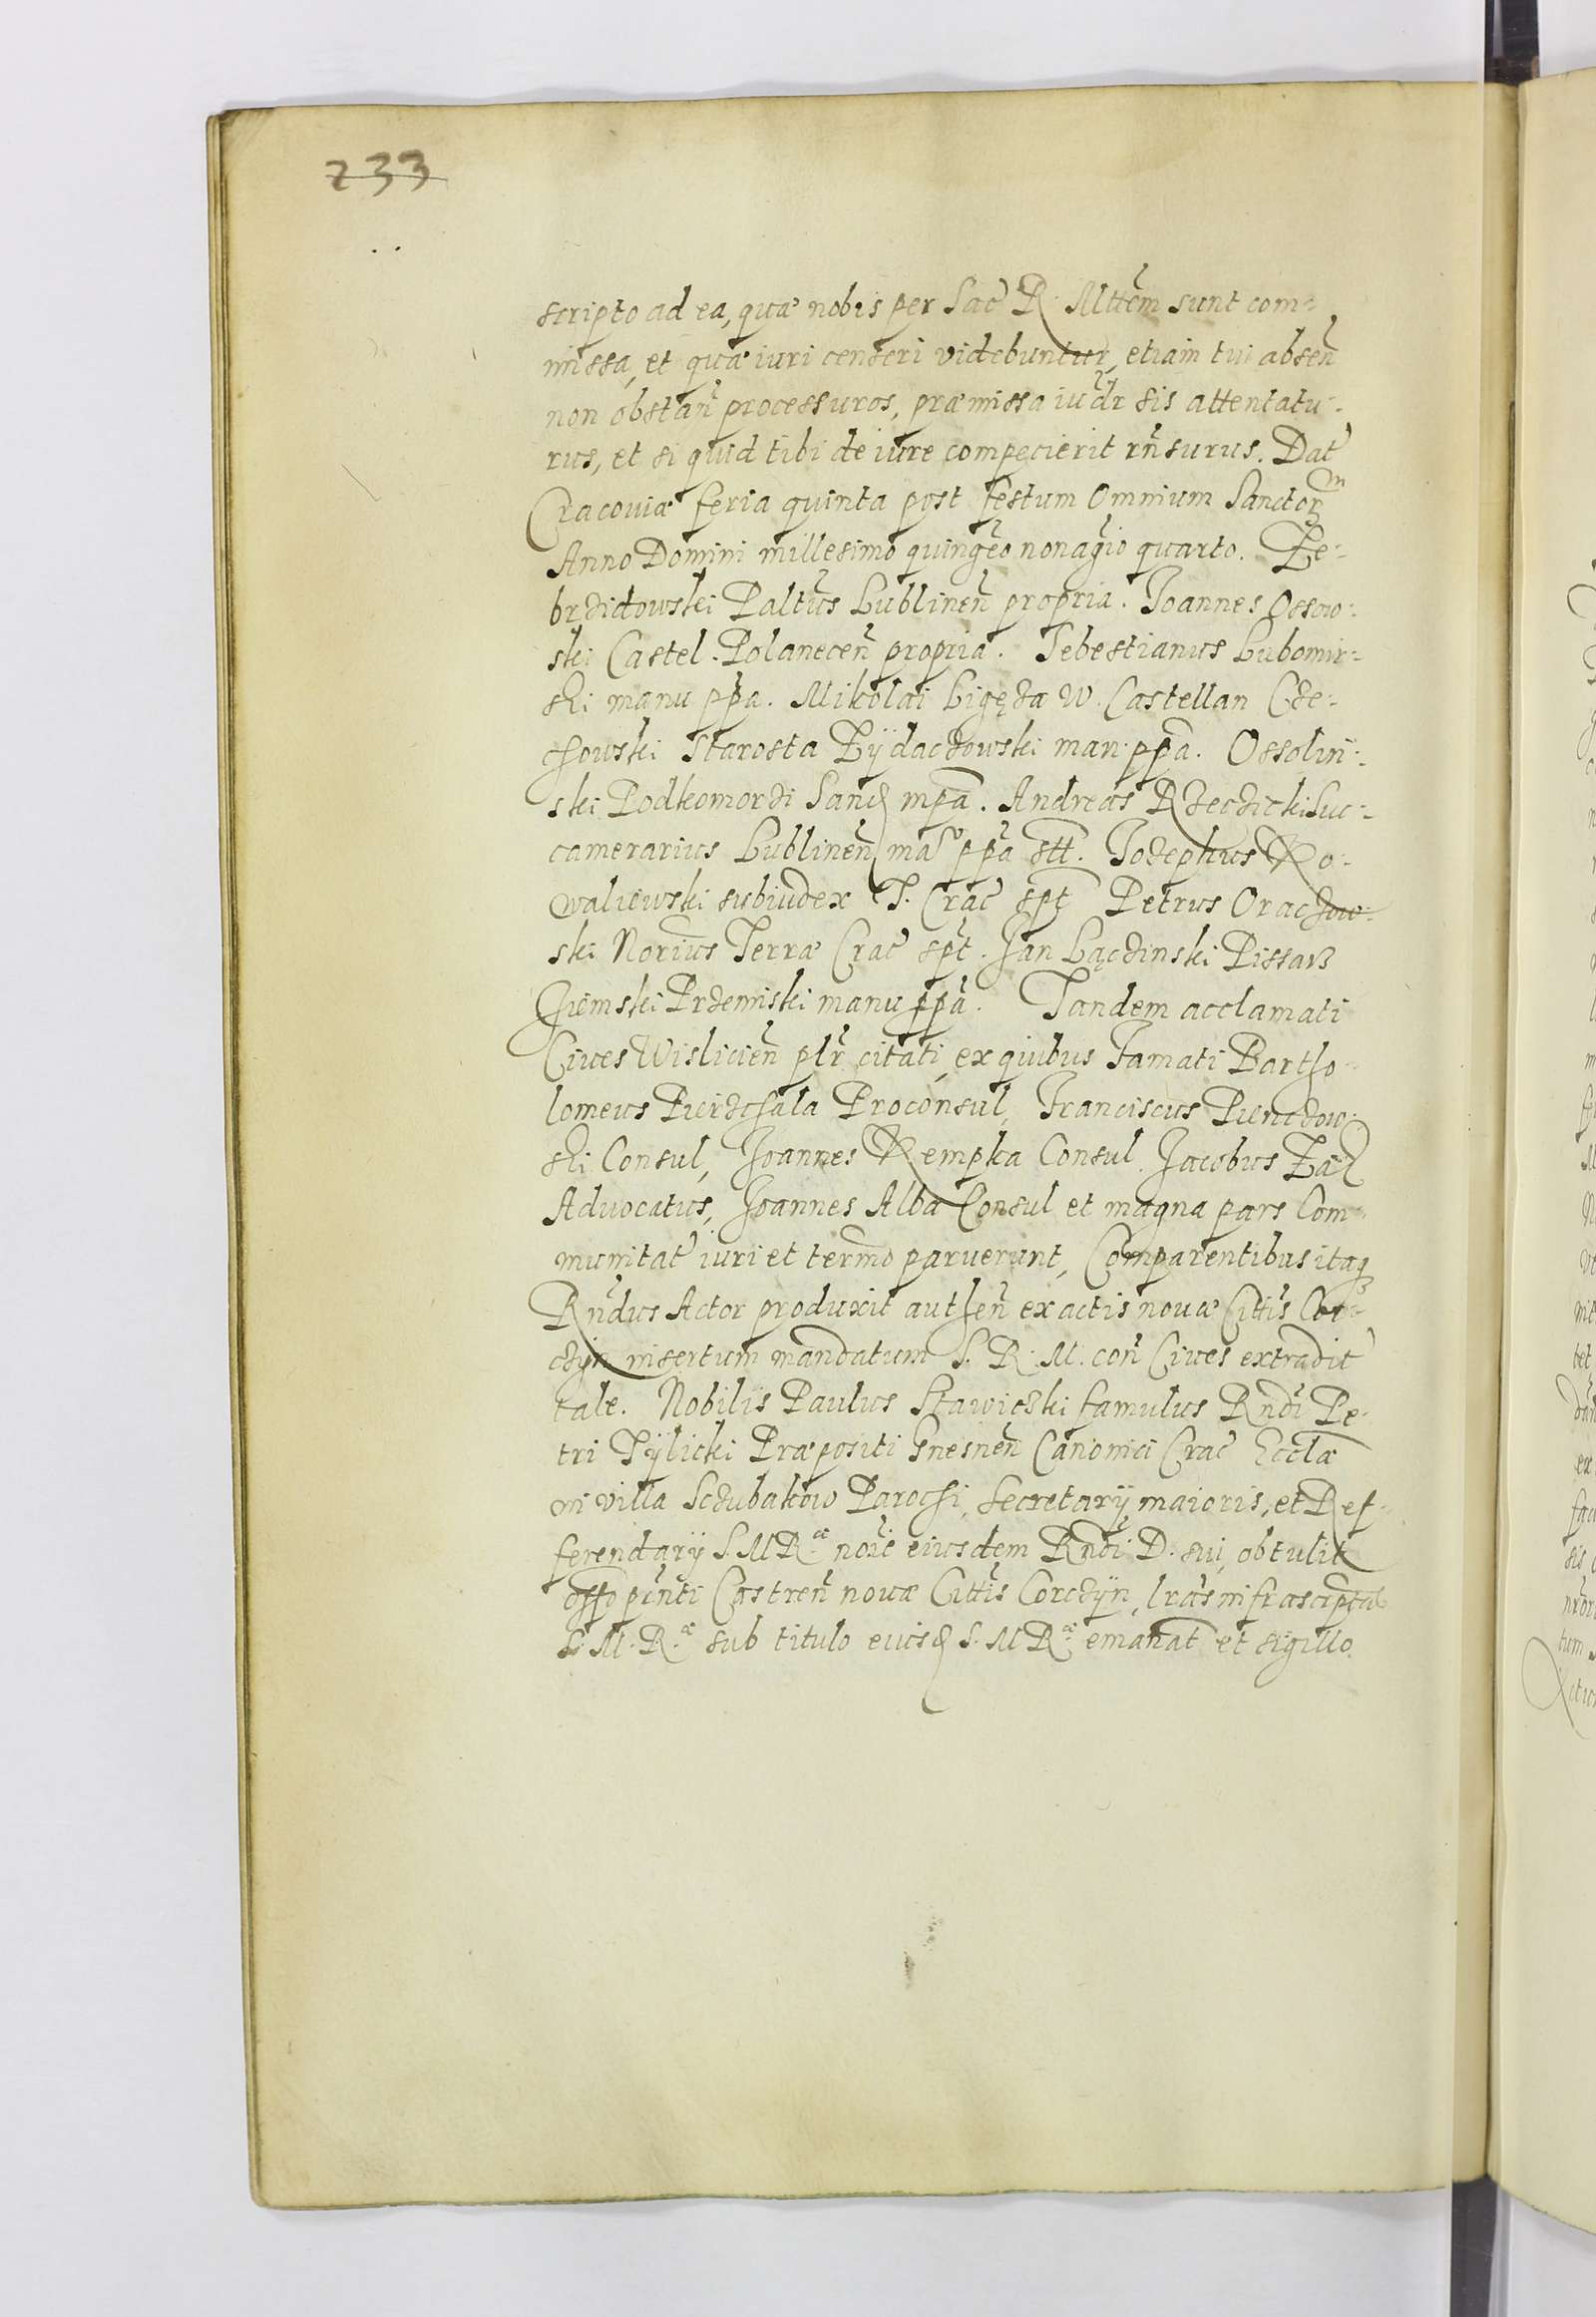 233
scripto ad ea, quæ nobis per Sac R. Mttem sunt com-
missa, et quæ iuri censeri videbuntur, etiam tui absen
non obstan processuros, præmissa iudr sis attentatu-
rus, et si quid tibi de iure compecierit rnsurus. Dat
Cracouiæ feria quinta post festum Omnium Sanctor
Anno Domini millesimo quingeo nonagio quarto. Ze-
brzidowski Paltus Lublinen propria. Joannes Ossow-
ski Castel. Polanecen propria. Sebestianus Lubomir-
ski manu ppa. Mikolai Ligęza W. Castellan Cze-
chowski Starosta Zÿdaczowski man. ppa. Ossolin-
ski Podkomorzi Sand mpa. Andreas Rzeczicki Suc-
camerarius Lublinen ma ppa stt. Jozephus Ko-
waliewski subiudex T. Crac spt Petrus Oraczow-
ski Norius Terræ Crac spt. Jan Łączinski Pissarz
Ziemski Przemiski manu ppa. Tandem acclamati
Ciues Wislicien plr citati, ex quibus Famati Bartho-
lomeus Pierzchala Proconsul, Franciscus Pienczow-
ski Consul, Joannes Kempka Consul Jacobus Zak
Aduocatus, Joannes Alba Consul et magna pars Com-
munitat iuri et termo paruerunt, Comparentibus itaq
Rndus Actor produxit authen ex actis nouæ Cittis Cor-
czÿn insertum mandatum S. R. M. con Ciues extradit
tale. Nobilis Paulus Stawiczki famulus Rndi Pe-
tri Tÿlicki Præpositi Gnesnen Canonici Crac Ecclæ
in villa Sczubakow Parochi, Secretarÿ maioris, et Ref-
ferendarÿ S. M R.æ noie eiusdem Rndi D. sui, obtulit
offo pnti Castren nouæ Cittis Corczÿn, lras infrascriptas
S. M. R.æ sub titulo eiusd S. M R.æ emanat et sigillo